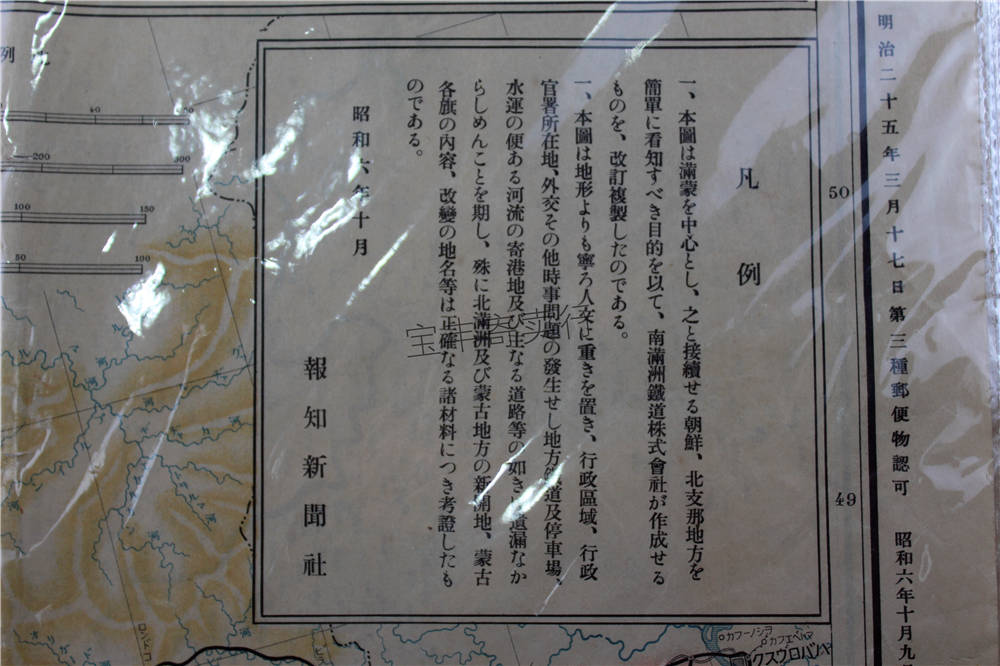 明治二十五年三月十七日第三種郵便物認可　昭和六年十月九
50
49
凡例
一、本圖は滿蒙を中心とし、之と接續せる朝鮮、北支那地方を
簡單に看知すべき目的を以て、南滿洲鐵道株式會社が作成せる
ものを、改訂複製したのである。
一、本圖は地形よりも寧ろ人文に重きを置き、行政區域、行政
官署所在地、外交その他時事問題の發生せし地方鐵道及停車場、
水運の便ある河流の寄港地及び主なる道路等の如きは遺漏なか
らしめんことを期し、殊に北滿洲及び蒙古地方の新開地、蒙古
各旗の内容、改變の地名等は正確なる諸材料につき考證したも
のである。
昭和六年十月
報知新聞社
例
40
200
300
100
150
50
100
カフーノシヲ
カフエベルマ
クスウロバハ
宝丰斋卖行